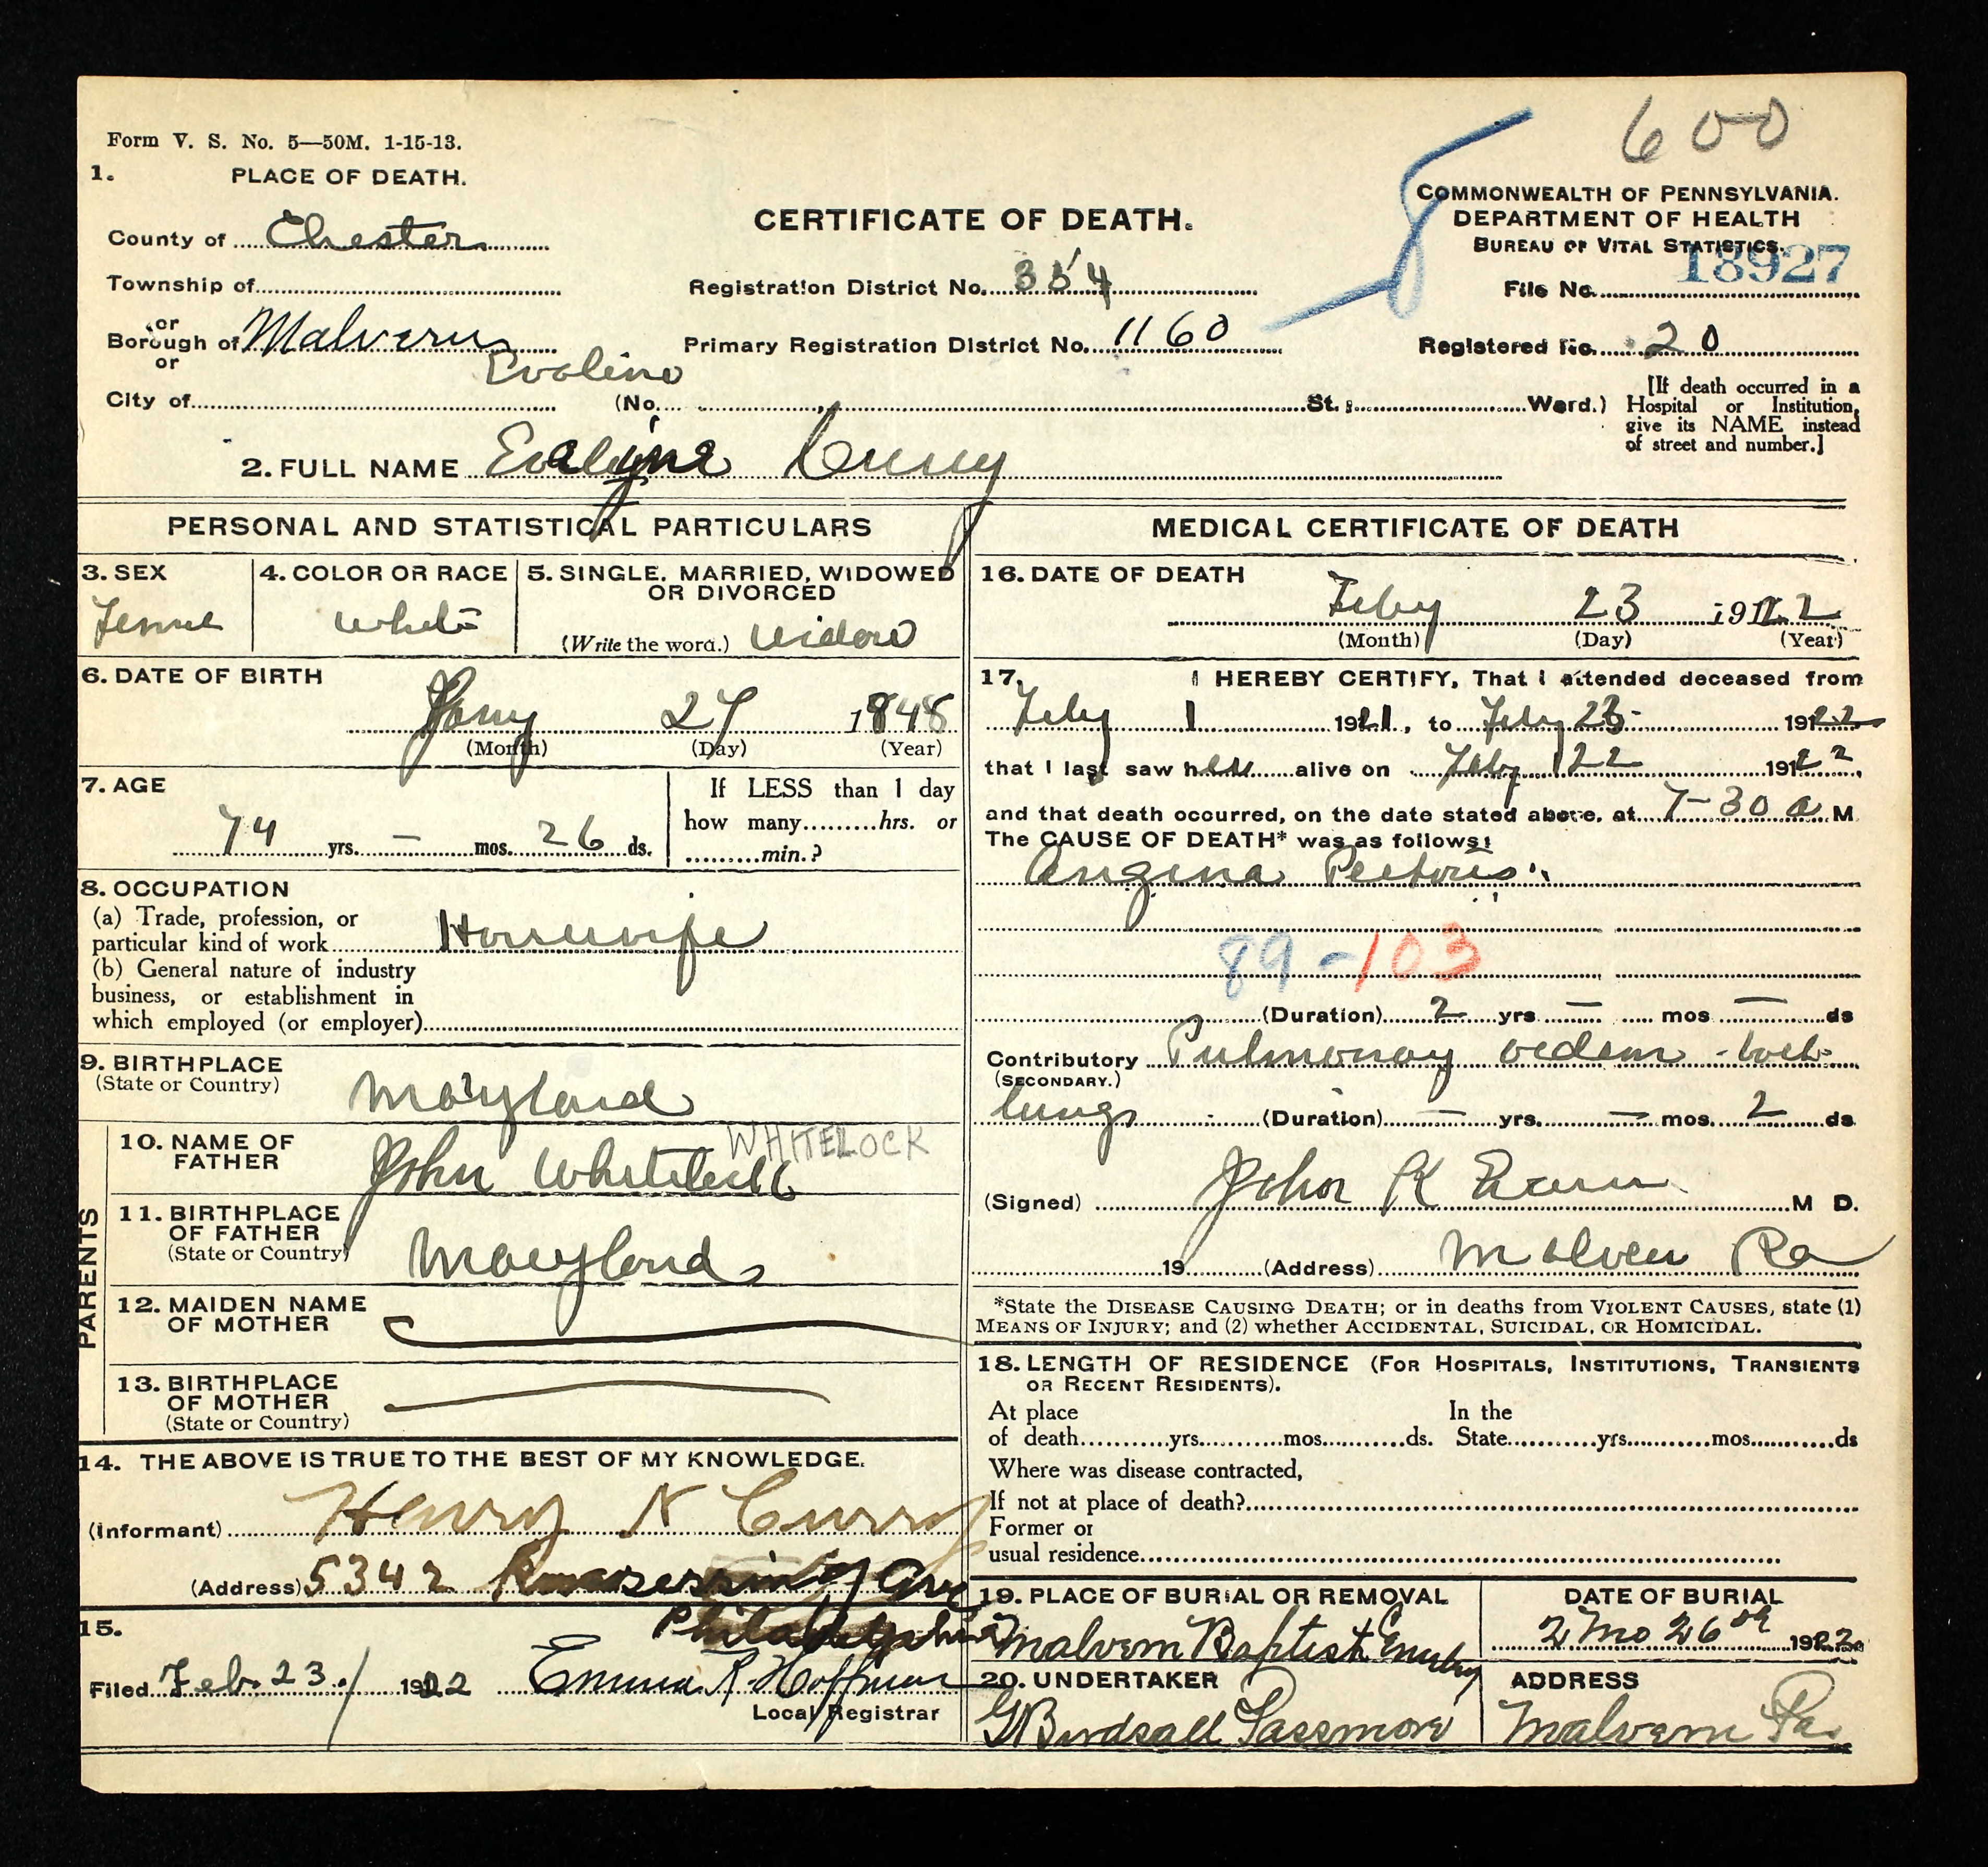 600
Form V. S. No. 5—50M. 1-15-13.
1. PLACE OF DEATH.
County of Chester
Township of
or
Borough of Malvern
or
City of
CERTIFICATE OF DEATH.
Registration District No. 354
Primary Registration District No. 1160
Evaline
(No. St.; Ward.)
COMMONWEALTH OF PENNSYLVANIA.
DEPARTMENT OF HEALTH
BUREAU OF VITAL STATISTICS.
File No. 18927
Registered No. 20
[If death occurred in a
Hospital or Institution,
give its NAME instead
of street and number.]
2. FULL NAME Evaline Curry
PERSONAL AND STATISTICAL PARTICULARS
3. SEX
Female
4. COLOR OR RACE
White
5. SINGLE, MARRIED, WIDOWED
OR DIVORCED
(Write the word.) Widow
6. DATE OF BIRTH
Jany 27 1848
(Month) (Day) (Year)
7. AGE
74 yrs. — mos. 26 ds.
If LESS than 1 day
how many hrs. or
min.?
8. OCCUPATION
(a) Trade, profession, or
particular kind of work Housewife
(b) General nature of industry
business, or establishment in
which employed (or employer)
9. BIRTHPLACE
(State or Country)
Maryland
PARENTS
10. NAME OF
FATHER
WHITELOCK
John
11. BIRTHPLACE
OF FATHER
(State or Country)
Maryland
12. MAIDEN NAME
OF MOTHER
13. BIRTHPLACE
OF MOTHER
(State or Country)
14. THE ABOVE IS TRUE TO THE BEST OF MY KNOWLEDGE.
(Informant) Henry N Curry
(Address) 5342 Kingsessing Ave
Philadelphia
15.
Filed Feb. 23. 1922 Emma R. Hoffman
Local Registrar
MEDICAL CERTIFICATE OF DEATH
16. DATE OF DEATH
Feby 23 1922
(Month) (Day) (Year)
17. I HEREBY CERTIFY, That I attended deceased from
Feby 1 1921, to Feby 23 1922
that I last saw her alive on Feby 22 1922,
and that death occurred, on the date stated above, at 7-30 a M.
The CAUSE OF DEATH* was as follows:
Angina Pectoris
89-103
(Duration) 2 yrs — mos — ds
Contributory Pulmonary oedem - both
(SECONDARY.)
lungs (Duration) — yrs. — mos. 2 ds.
(Signed) John K M D.
19 (Address) Malvern Pa
*State the DISEASE CAUSING DEATH; or in deaths from VIOLENT CAUSES, state (1)
MEANS OF INJURY; and (2) whether ACCIDENTAL, SUICIDAL, OR HOMICIDAL.
18. LENGTH OF RESIDENCE (FOR HOSPITALS, INSTITUTIONS, TRANSIENTS
OR RECENT RESIDENTS).
At place In the
of death yrs. mos. ds. State yrs. mos. ds
Where was disease contracted,
If not at place of death?
Former or
usual residence
19. PLACE OF BURIAL OR REMOVAL
Malvern Baptist Cemetery
DATE OF BURIAL
2 Mo 26th 1922
20. UNDERTAKER
G Birdsall Passmore
ADDRESS
Malvern Pa.